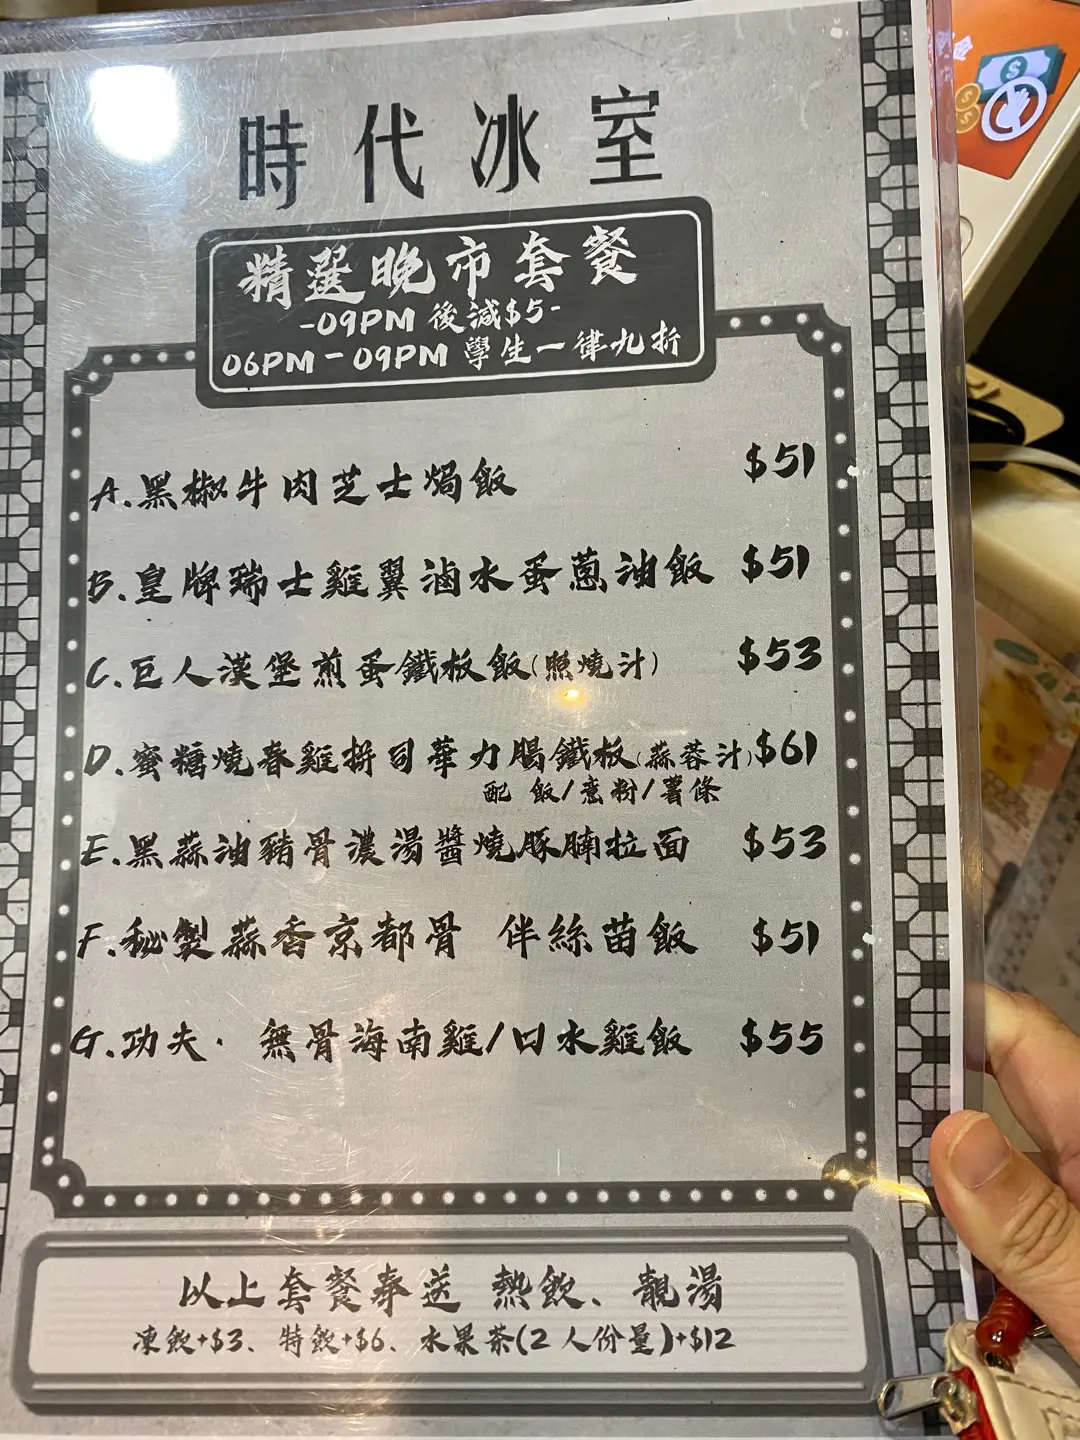 時代冰室
精選晚市套餐
-09PM 後減$5-
06PM-09PM 學生一律九折
A.黑椒牛肉芝士焗飯 $51
B.皇牌瑞士雞翼滷水蛋蔥油飯 $51
C.巨人漢堡煎蛋鐵板飯(照燒汁) $53
D.蜜糖燒春雞拼司華力腸鐵板(蒜蓉汁) $61
配 飯/意粉/薯條
E.黑蒜油豬骨濃湯醬燒豚腩拉面 $53
F.秘製蒜香京都骨 伴絲苗飯 $51
G.功夫· 無骨海南雞/口水雞飯 $55
以上套餐奉送 熱飲、靚湯
凍飲+$3、特飲+$6、水果茶(2人份量)+$12